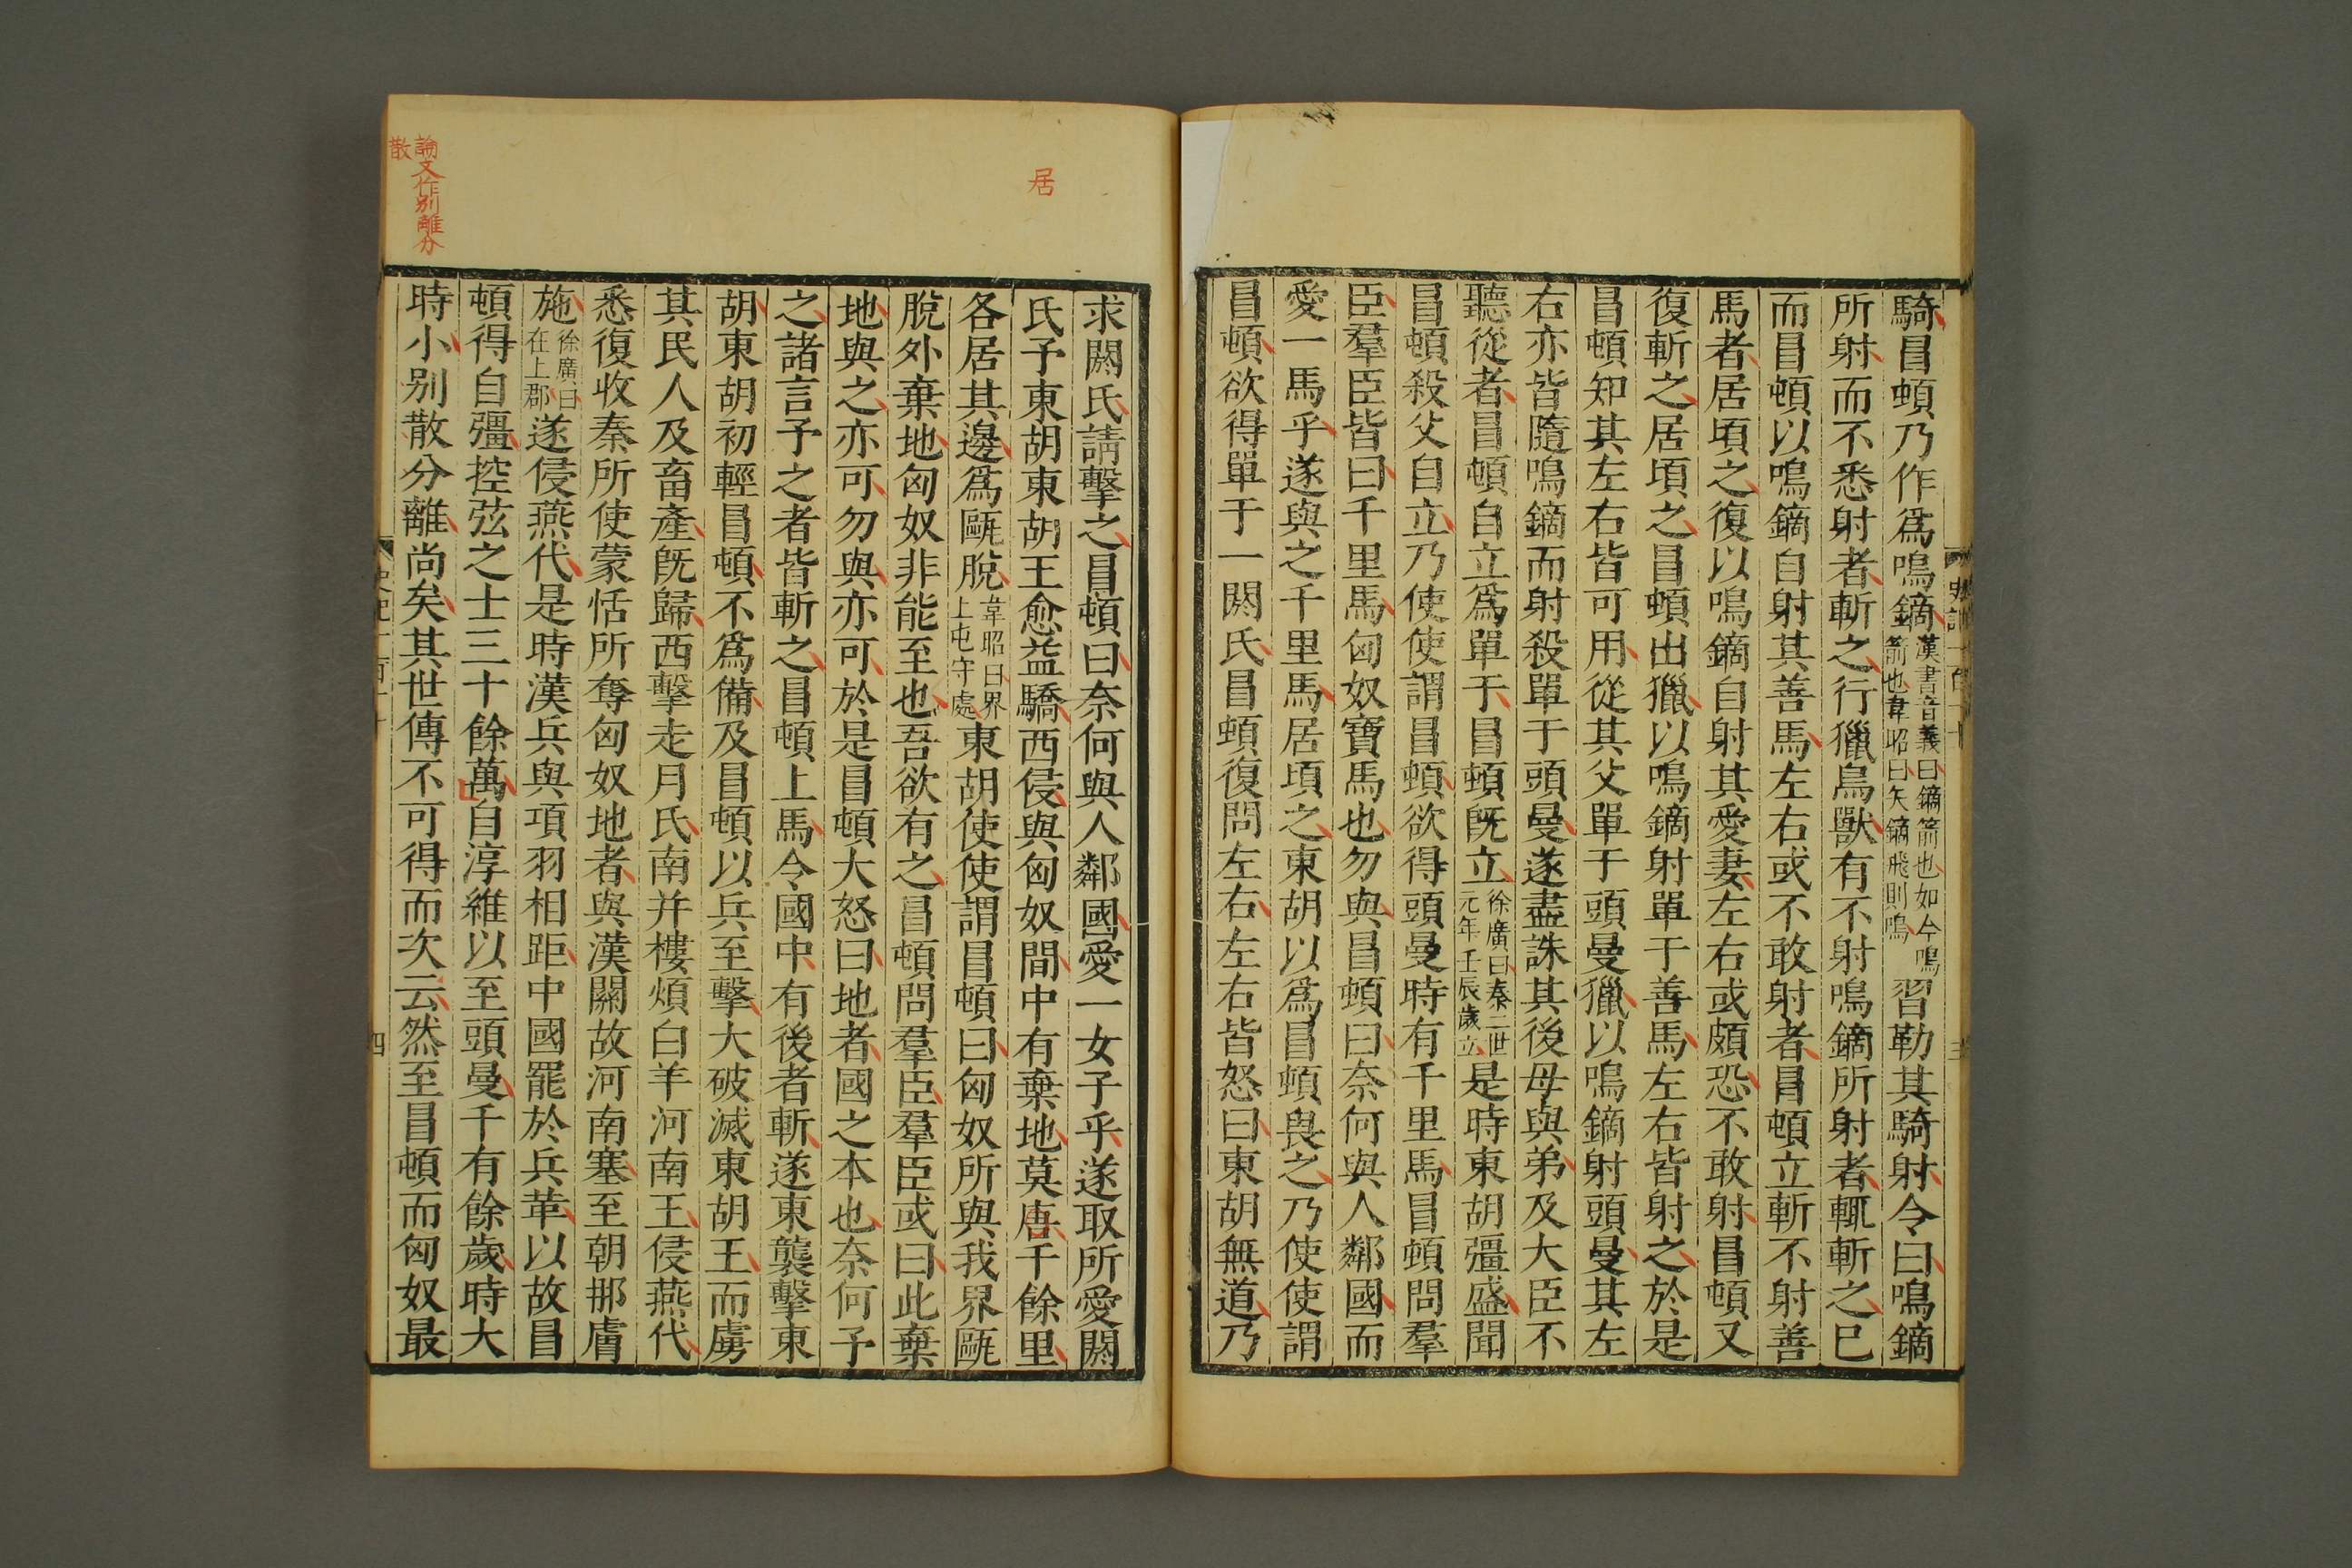 騎冒頓乃作爲鳴鏑漢書音義曰鏑箭也如今鳴箭也韋昭曰矢鏑飛則鳴習勒其騎射令曰鳴鏑
所射而不悉射者斬之行獵鳥獸有不射鳴鏑所射者輒斬之已
而冒頓以鳴鏑自射其善馬左右或不敢射者冒頓立斬不射善
馬者居頃之復以鳴鏑自射其愛妻左右或頗恐不敢射冒頓又
復斬之居頃之冒頓出獵以鳴鏑射單于善馬左右皆射之於是
冒頓知其左右皆可用從其父單于頭曼獵以鳴鏑射頭曼其左
右亦皆隨鳴鏑而射殺單于頭曼遂盡誅其後母與弟及大臣不
聽從者冒頓自立爲單于冒頓既立徐廣曰秦二世元年壬辰歲立是時東胡彊盛聞
冒頓殺父自立乃使使謂冒頓欲得頭曼時有千里馬冒頓問羣
臣羣臣皆曰千里馬匈奴寶馬也勿與冒頓曰奈何與人鄰國而
愛一馬乎遂與之千里馬居頃之東胡以爲冒頓畏之乃使使謂
冒頓欲得單于一閼氏冒頓復問左右左右皆怒曰東胡無道乃
史記一百一十
三
居
求閼氏請擊之冒頓曰奈何與人鄰國愛一女子乎遂取所愛閼
氏予東胡東胡王愈益驕西侵與匈奴間中有棄地莫唐千餘里
各居其邊爲甌脫韋昭曰界上屯守處東胡使使謂冒頓曰匈奴所與我界甌
脫外棄地匈奴非能至也吾欲有之冒頓問羣臣羣臣或曰此棄
地與之亦可勿與亦可於是冒頓大怒曰地者國之本也奈何予
之諸言予之者皆斬之冒頓上馬令國中有後者斬遂東襲擊東
胡東胡初輕冒頓不爲備及冒頓以兵至擊大破滅東胡王而虜
其民人及畜產既歸西擊走月氏南并樓煩白羊河南王侵燕代
悉復收秦所使蒙恬所奪匈奴地者與漢關故河南塞至朝那膚
施徐廣曰在上郡遂侵燕代是時漢兵與項羽相距中國罷於兵革以故冒
頓得自彊控弦之士三十餘萬自淳維以至頭曼千有餘歲時大
時小別散分離尚矣其世傳不可得而次云然至冒頓而匈奴最
論文作別離分
散
史記一百一十
四